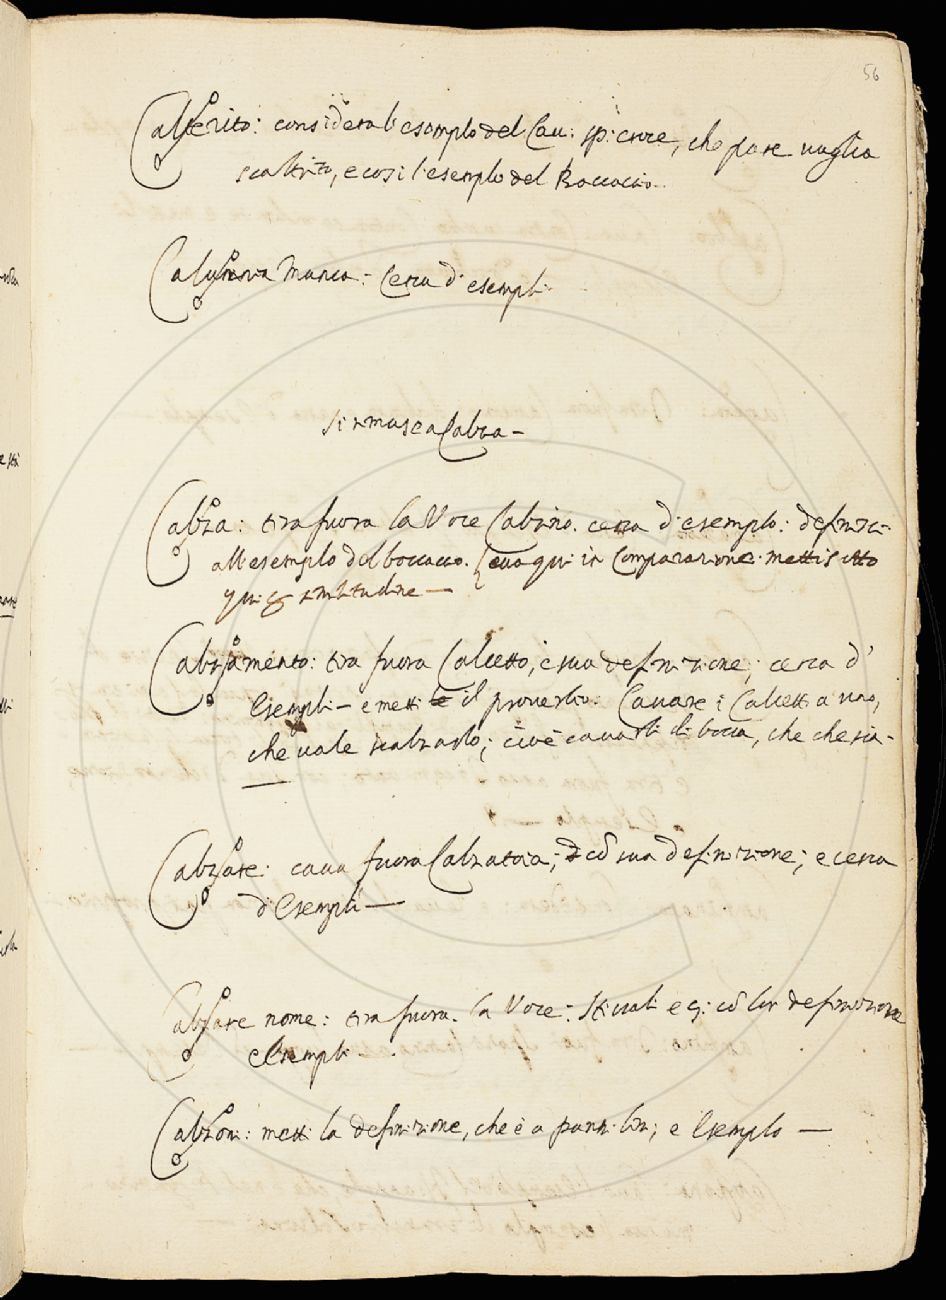 56
Calterito: considera l'esemplo del Cau: sp: croce, che pare uaglia
scaltrito, e così l'esemplo del Boccaccio.
manca: Cerca d'esempli
si rimasea Calza –
Calza: tira fuora la Voce Calzino. cerca d'esemplo: definisci
all'esemplo del boccaccio. Leua qui in Comparazione. mettisotto
similitudine —
Calzamento: tira fuora Calcetto, e sua definizione; cerca d'
Esempli – e metti il prouerbio. Cauare i Calcetti a uno,
che uale scalzarlo; cioè cauarli di bocca, che che sia –
Calzare: caua fuora Calzatoia; cõ sua definizione; e cerca
d'Esempli —
Calzare nome: tira fuora. la Voce: Stiuali cõ lor definizione
e Esempli
Calzoni: metti la definizione, che è a panni lini; e Esemplo —